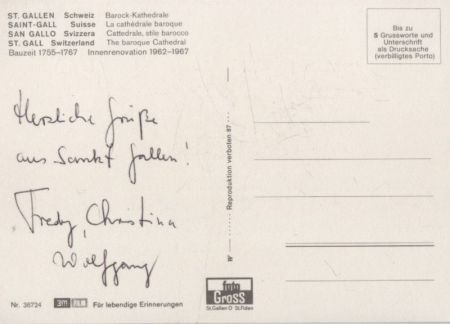 ST. GALLEN Schweiz Barock-Kathedrale
SAINT-GALL Suisse La cathédrale baroque
SAN GALLO Svizzera Cattedrale, stile barocco
ST. GALL Switzerland The baroque Cathedral
Bauzeit 1755–1767 Innenrenovation 1962–1967
Bis zu
5 Grussworte und
Unterschrift
als Drucksache
(verbilligtes Porto)
Herzliche Grüße
aus Sankt Gallen!
Fredy, Christina
Wolfgang
Reproduktion verboten 87
foto
Gross
St.Gallen O St.Fiden
Nr. 36724 3M FILM Für lebendige Erinnerungen